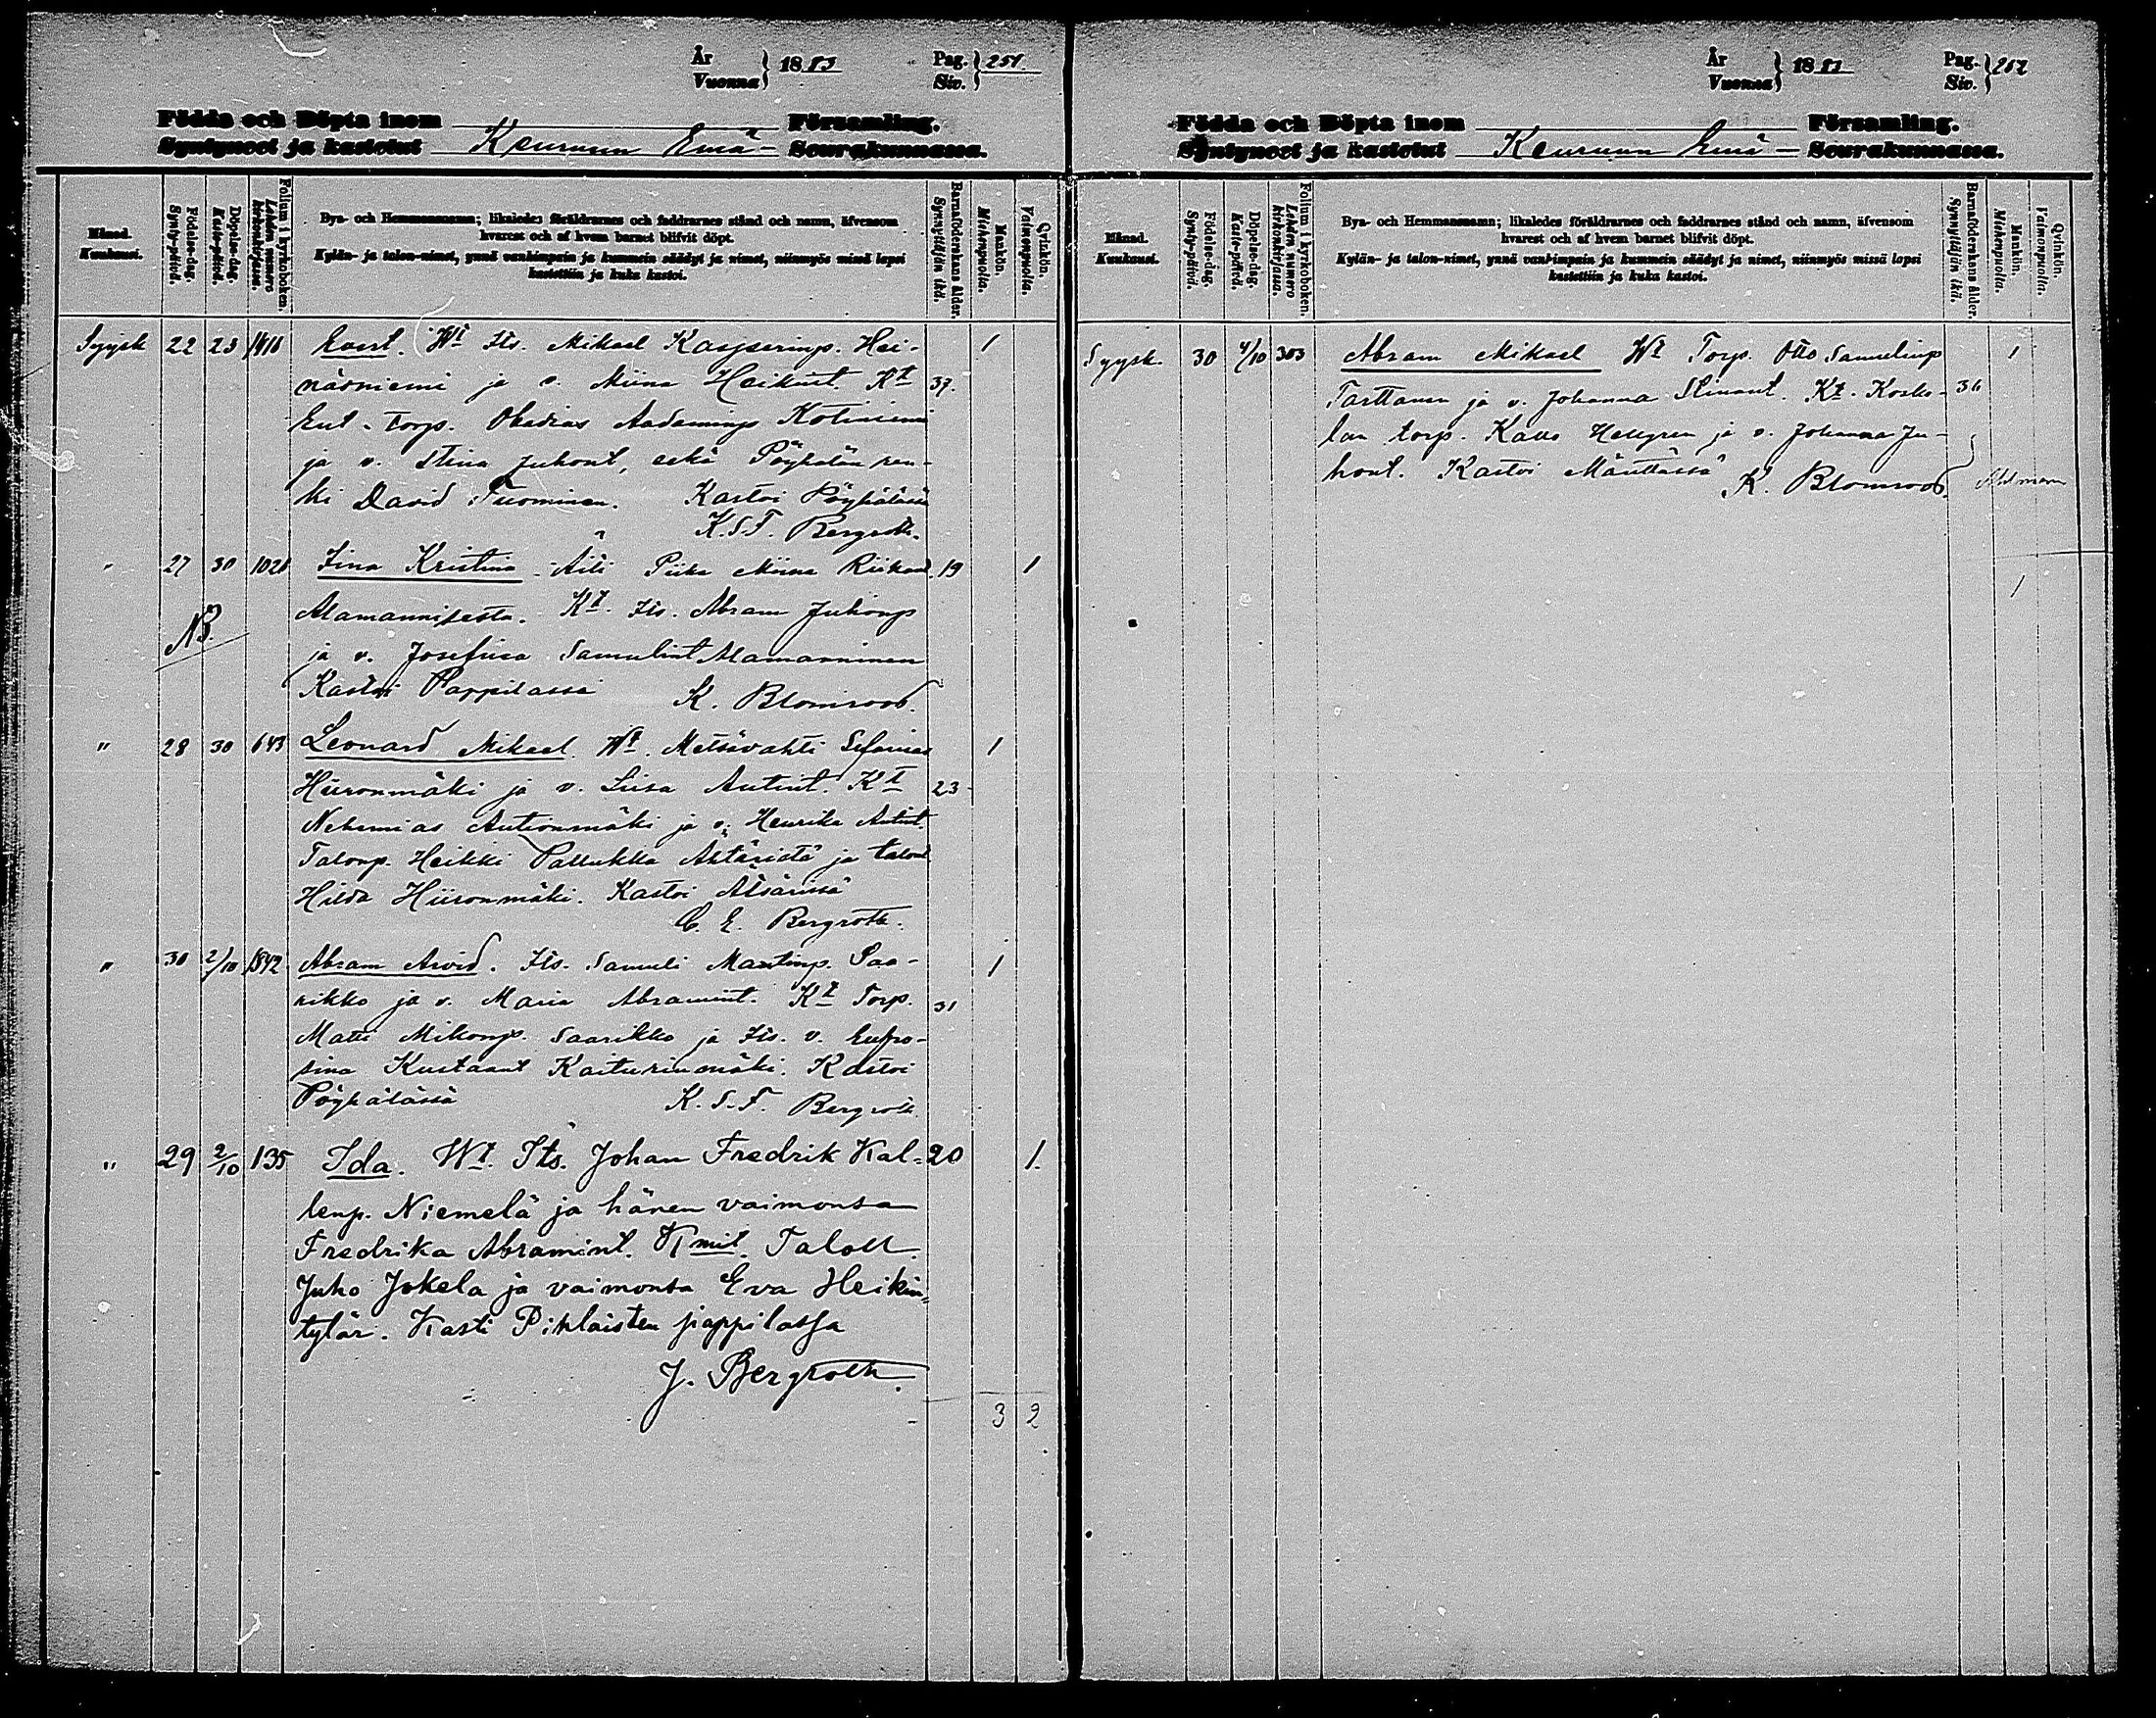 År
Vuonna } 1883 Pag.
Siv. } 251
Födda och Döpta inom
Syntyneet ja kastetut Keuruun Emä- Församling.
Seurakunnassa.
Månad.
Kuukausi.
Födelse-dag.
Synty-päivä.
Döpelse-dag.
Kaste-päivä.
Folium i kyrkoboken.
Lehden numero
kirkonkirjassa.
Bya- och Hemmansnamn; likaledes föräldrarnes och faddrarnes stånd och namn, äfvensom
hvarest och af hvem barnet blifvit döpt.
Kylän- ja talon-nimet, ynnä vanhimpain ja kummein säädyt ja nimet, niinmyös missä lapsi
kastettiin ja kuka kastoi.
Barnaföderskans ålder.
Synnyttäjän ikä.
Mankön.
Miehenpuolia.
Qvinkön.
Vaimonpuolia.
Syysk 22 23 Evert. Wt Its. Mikael Kasperinp. Hei- 1
näsniemi ja v. Miina Heikint. Kt 37.
Ent. Torp. Obadias Aadaminp Kotiniemi
ja v. Stina Juhont, sekä Pöyhölän ren-
ki David Tuominen. Kastoi Pöyhölässä
K.S.F. Bergroth.
" 27 30 1021 Iina Kristina. Äiti Piika Miina 19 1
NB. Alamannisesta. Kt. Its. Abram Juhonp
ja v. Josefina Samulint Alamanninen
Kastoi Pappilassa K. Blomroos.
" 28 30 643 Leonard Mikael Wt. Metsävahti Sefanias 1
Hiironmäki ja v. Liisa Antint. Kt 23
Nehemias Autionmäki ja v. Henrika Antint.
Talonp. Heikki Pallukka Ähtäristä ja talont
Hilda Hiironmäki. Kastoi Ätsärissä
C. E. Bergroth.
" 30 2/10 1842 Abram Arvid. Its. Samuli Mattinp. Saa- 1
rikko ja v. Maria Abramint. Kt Torp. 31
Matti Mikonp. Saarikko ja Its. v. Eufro-
sina Kustaant Kaiturinmäki. Kastoi
Pöyhölässä K.S.F. Bergroth.
" 29 2/10 135 Ida. Wt. Its. Johan Fredrik Kal- 20 1.
lenp. Niemelä ja hänen vaimonsa
Fredrika Abramint. Kmit. Talol.
Juho Jokela ja vaimonsa Eva Heikin-
tytär. Kasti Pihlaisten pappilassa
J. Bergroth.
3 2
År
Vuonna } 1883 Pag.
Siv. } 252
Födda och Döpta inom
Syntyneet ja kastetut Keuruun Emä- Församling.
Seurakunnassa.
Månad.
Kuukausi.
Födelse-dag.
Synty-päivä.
Döpelse-dag.
Kaste-päivä.
Folium i kyrkoboken.
Lehden numero
kirkonkirjassa.
Bya- och Hemmansnamn; likaledes föräldrarnes och faddrarnes stånd och namn, äfvensom
hvarest och af hvem barnet blifvit döpt.
Kylän- ja talon-nimet, ynnä vanhimpain ja kummein säädyt ja nimet, niinmyös missä lapsi
kastettiin ja kuka kastoi.
Barnaföderskans ålder.
Synnyttäjän ikä.
Mankön.
Miehenpuolia.
Qvinkön.
Vaimonpuolia.
Syysk. 30 4/10 303 Abram Mikael Wt Torp. Otto Samulinp 1
Tarttanen ja v. Johanna Stinant. Kt. Koske- 36
lan torp. Kalle Hellgren ja v. Johanna Ju-
hont. Kastoi Mänttässä K. Blomroos.
1